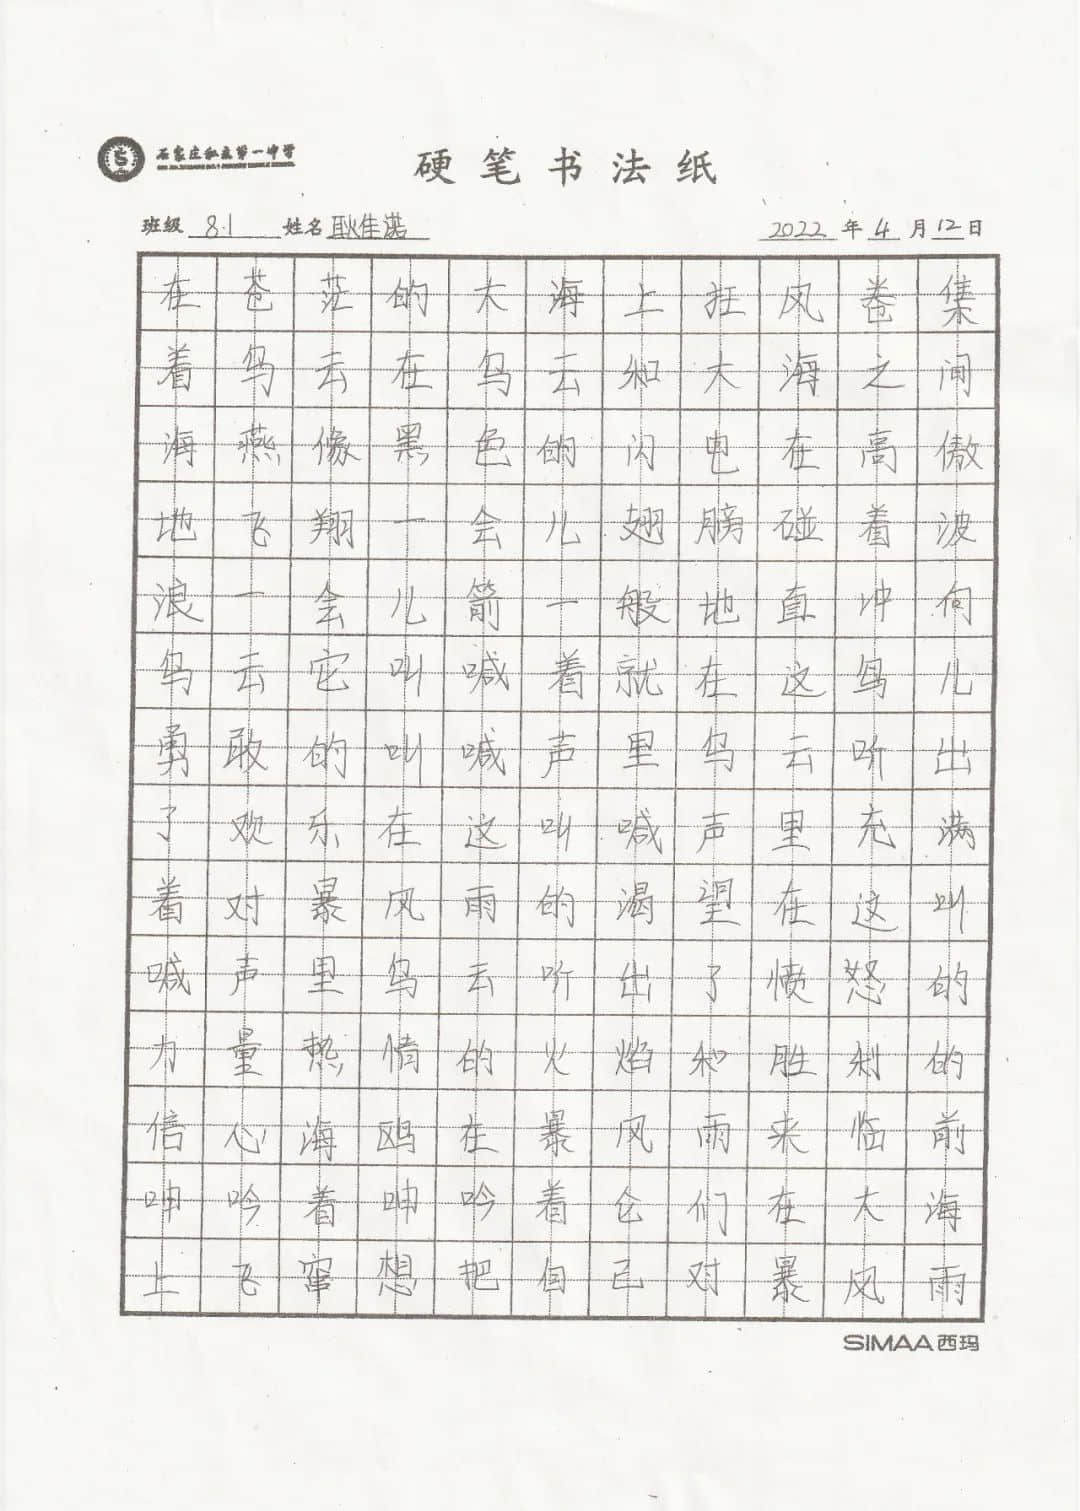 石家庄私立第一中学
硬笔书法纸
班级 8.1 姓名 耿佳诺 2022 年 4 月 12 日
在苍茫的大海上狂风卷集
着乌云在乌云和大海之间
海燕像黑色的闪电在高傲
地飞翔一会儿翅膀碰着波
浪一会儿箭一般地直冲向
乌云它叫喊着就在这鸟儿
勇敢的叫喊声里乌云听出
了欢乐在这叫喊声里充满
着对暴风雨的渴望在这叫
喊声里乌云听出了愤怒的
力量热情的火焰和胜利的
信心海鸥在暴风雨来临前
呻吟着呻吟着它们在大海
上飞窜想把自己对暴风雨
SIMAA西玛